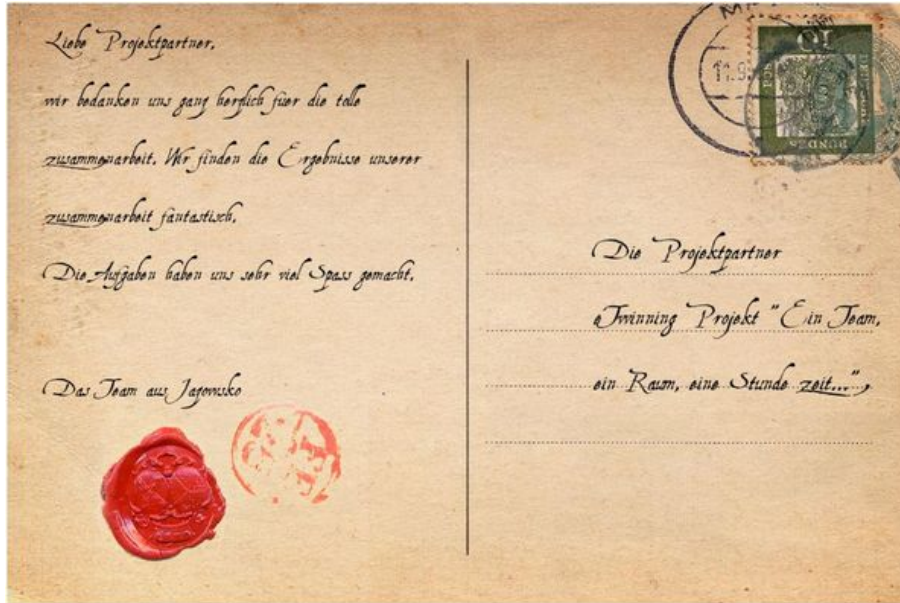 Liebe Projektpartner,
wir bedanken uns ganz herzlich fuer die tolle
zusammenarbeit. Wir finden die Ergebnisse unserer
zusammenarbeit fantastisch.
Die Aufgaben haben uns sehr viel Spass gemacht.
Das Team aus Jagowsko
10
11.9.
BUNDES
Die Projektpartner
eTwinning Projekt "Ein Team,
ein Raum, eine Stunde zeit...",